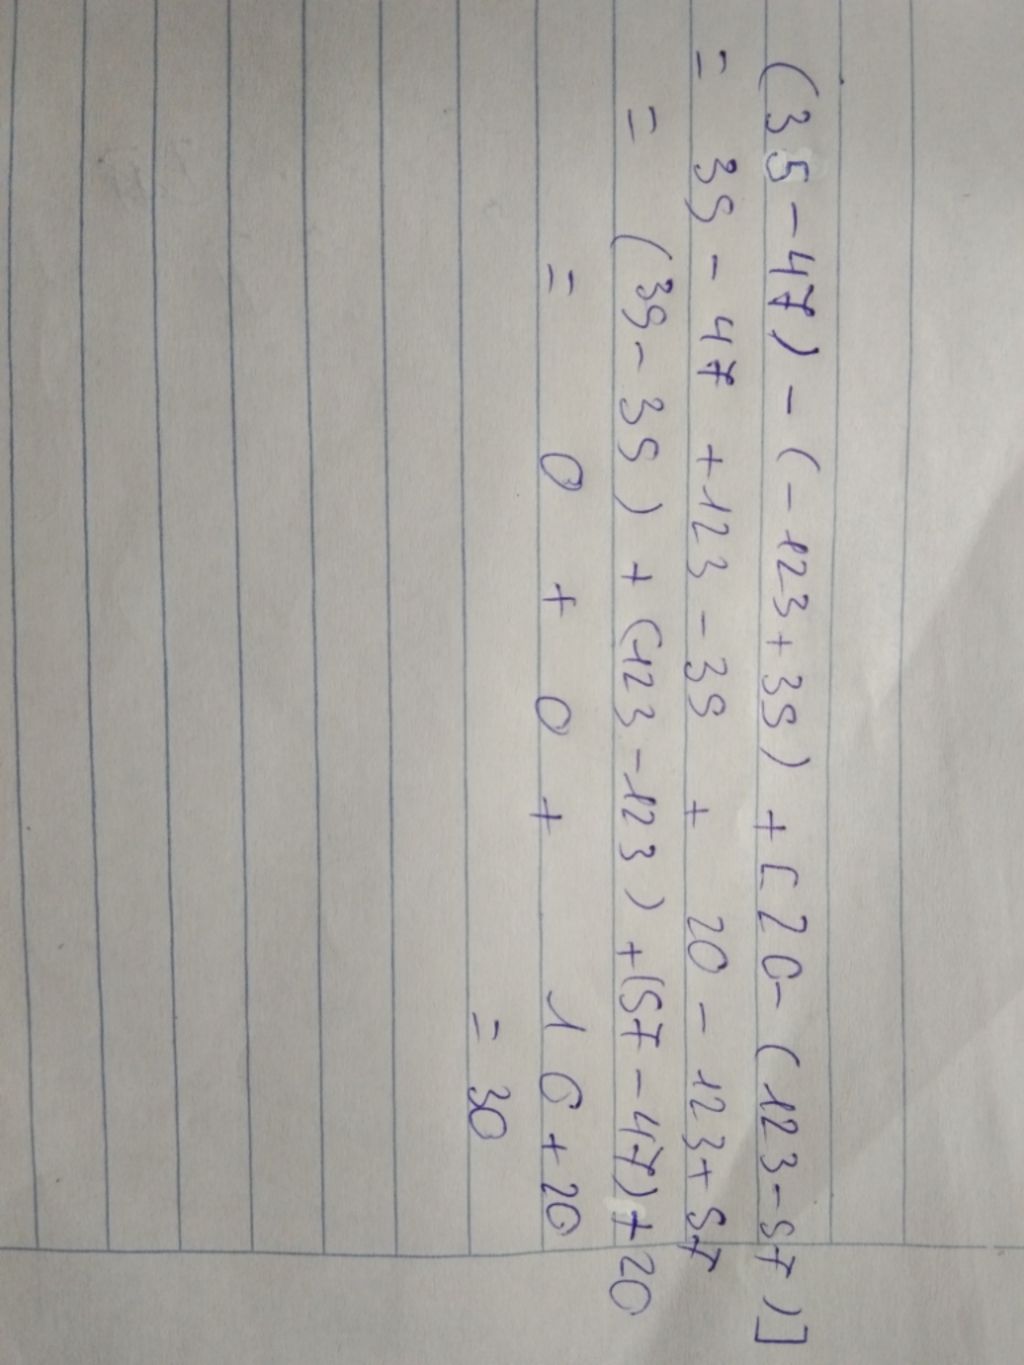 (35-47) - (-123+35) + [20- (123-57)]
= 35 - 47 +123 -35 + 20 - 123+57
= (35-35) + (123-123) +(57-47)+20
= 0 + 0 + 10+20
= 30